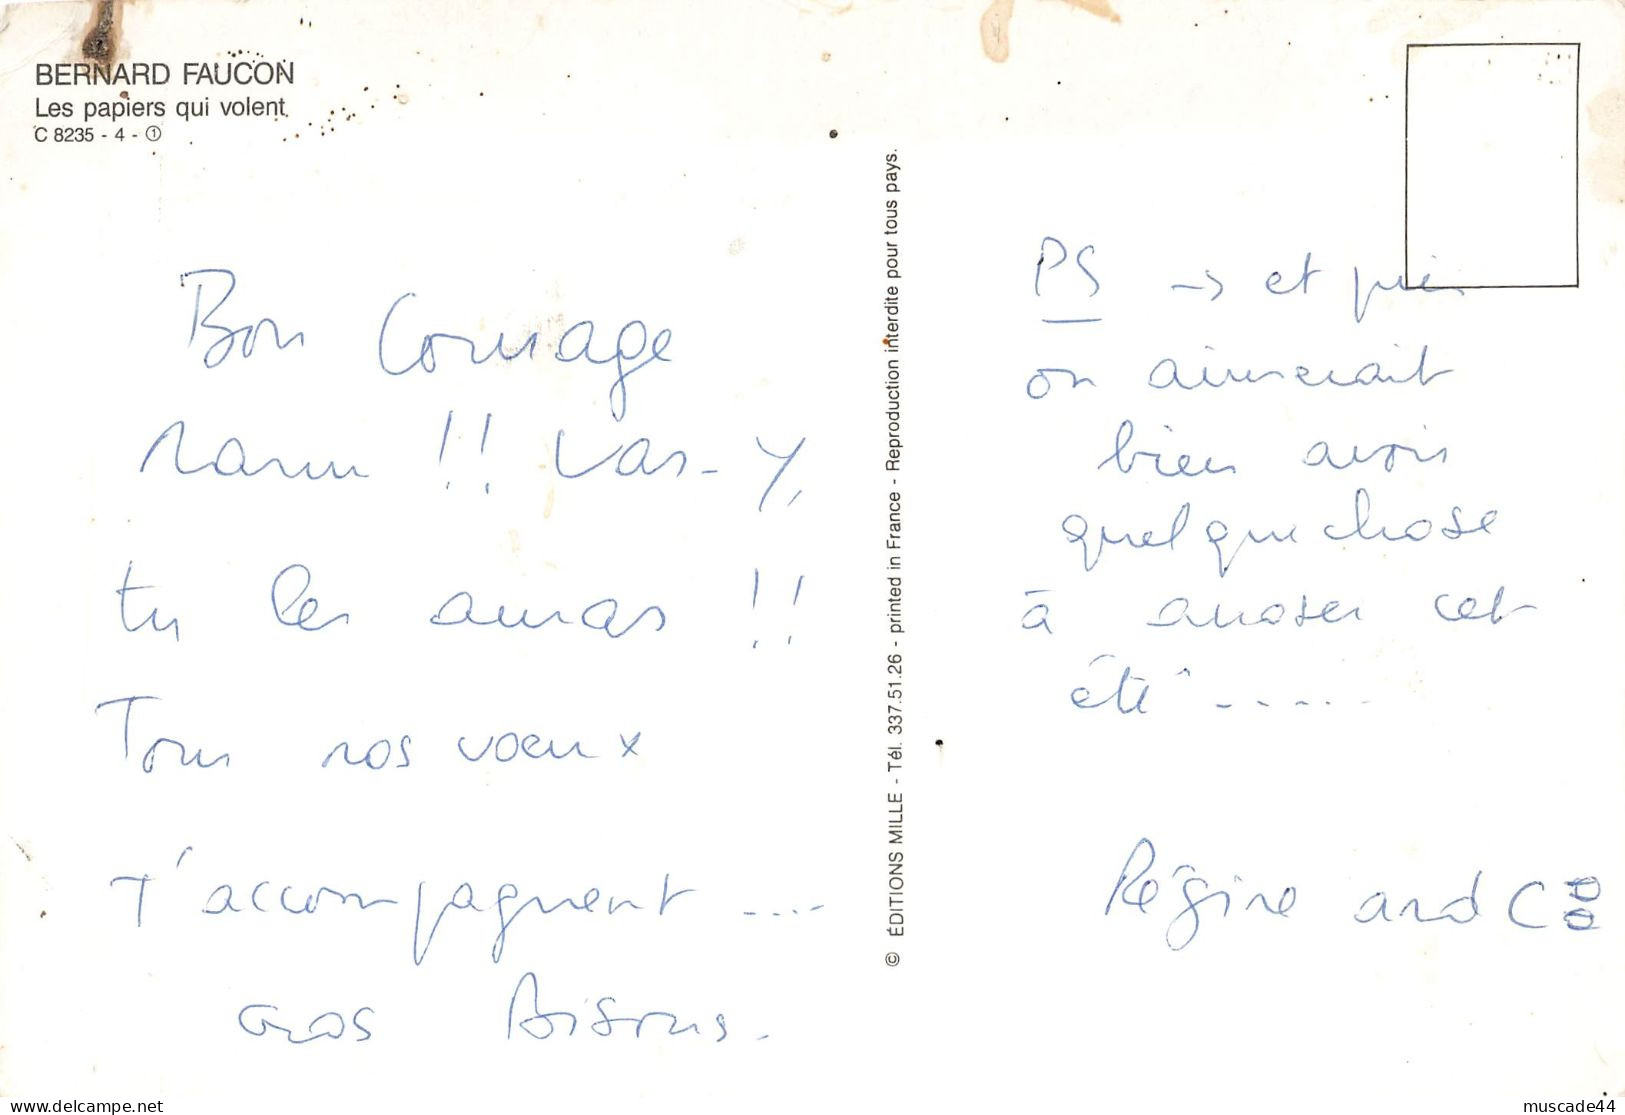 BERNARD FAUCON
Les papiers qui volent
C 8235 - 4 - ①
Bon Courage
!! Vas-y,
tu les auras !!
Tous nos voeux
T'accompagnent ....
Gros Bisous.
© ÉDITIONS MILLE - Tél. 337.51.26 - printed in France - Reproduction interdite pour tous pays.
PS -> et puis
on aimerait
bien avoir
quelque chose
à arroser cet
été .....
Régine and C
muscade44